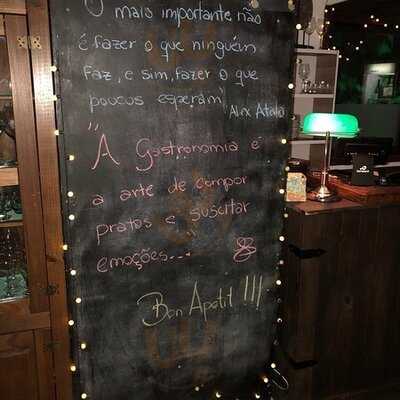 O mais importante não
é fazer o que ninguém
faz, e sim, fazer o que
poucos esperam" Alex Atala
"A Gastronomia é
a arte de compor
pratos e suscitar
emoções..."
Bon Apetit !!!